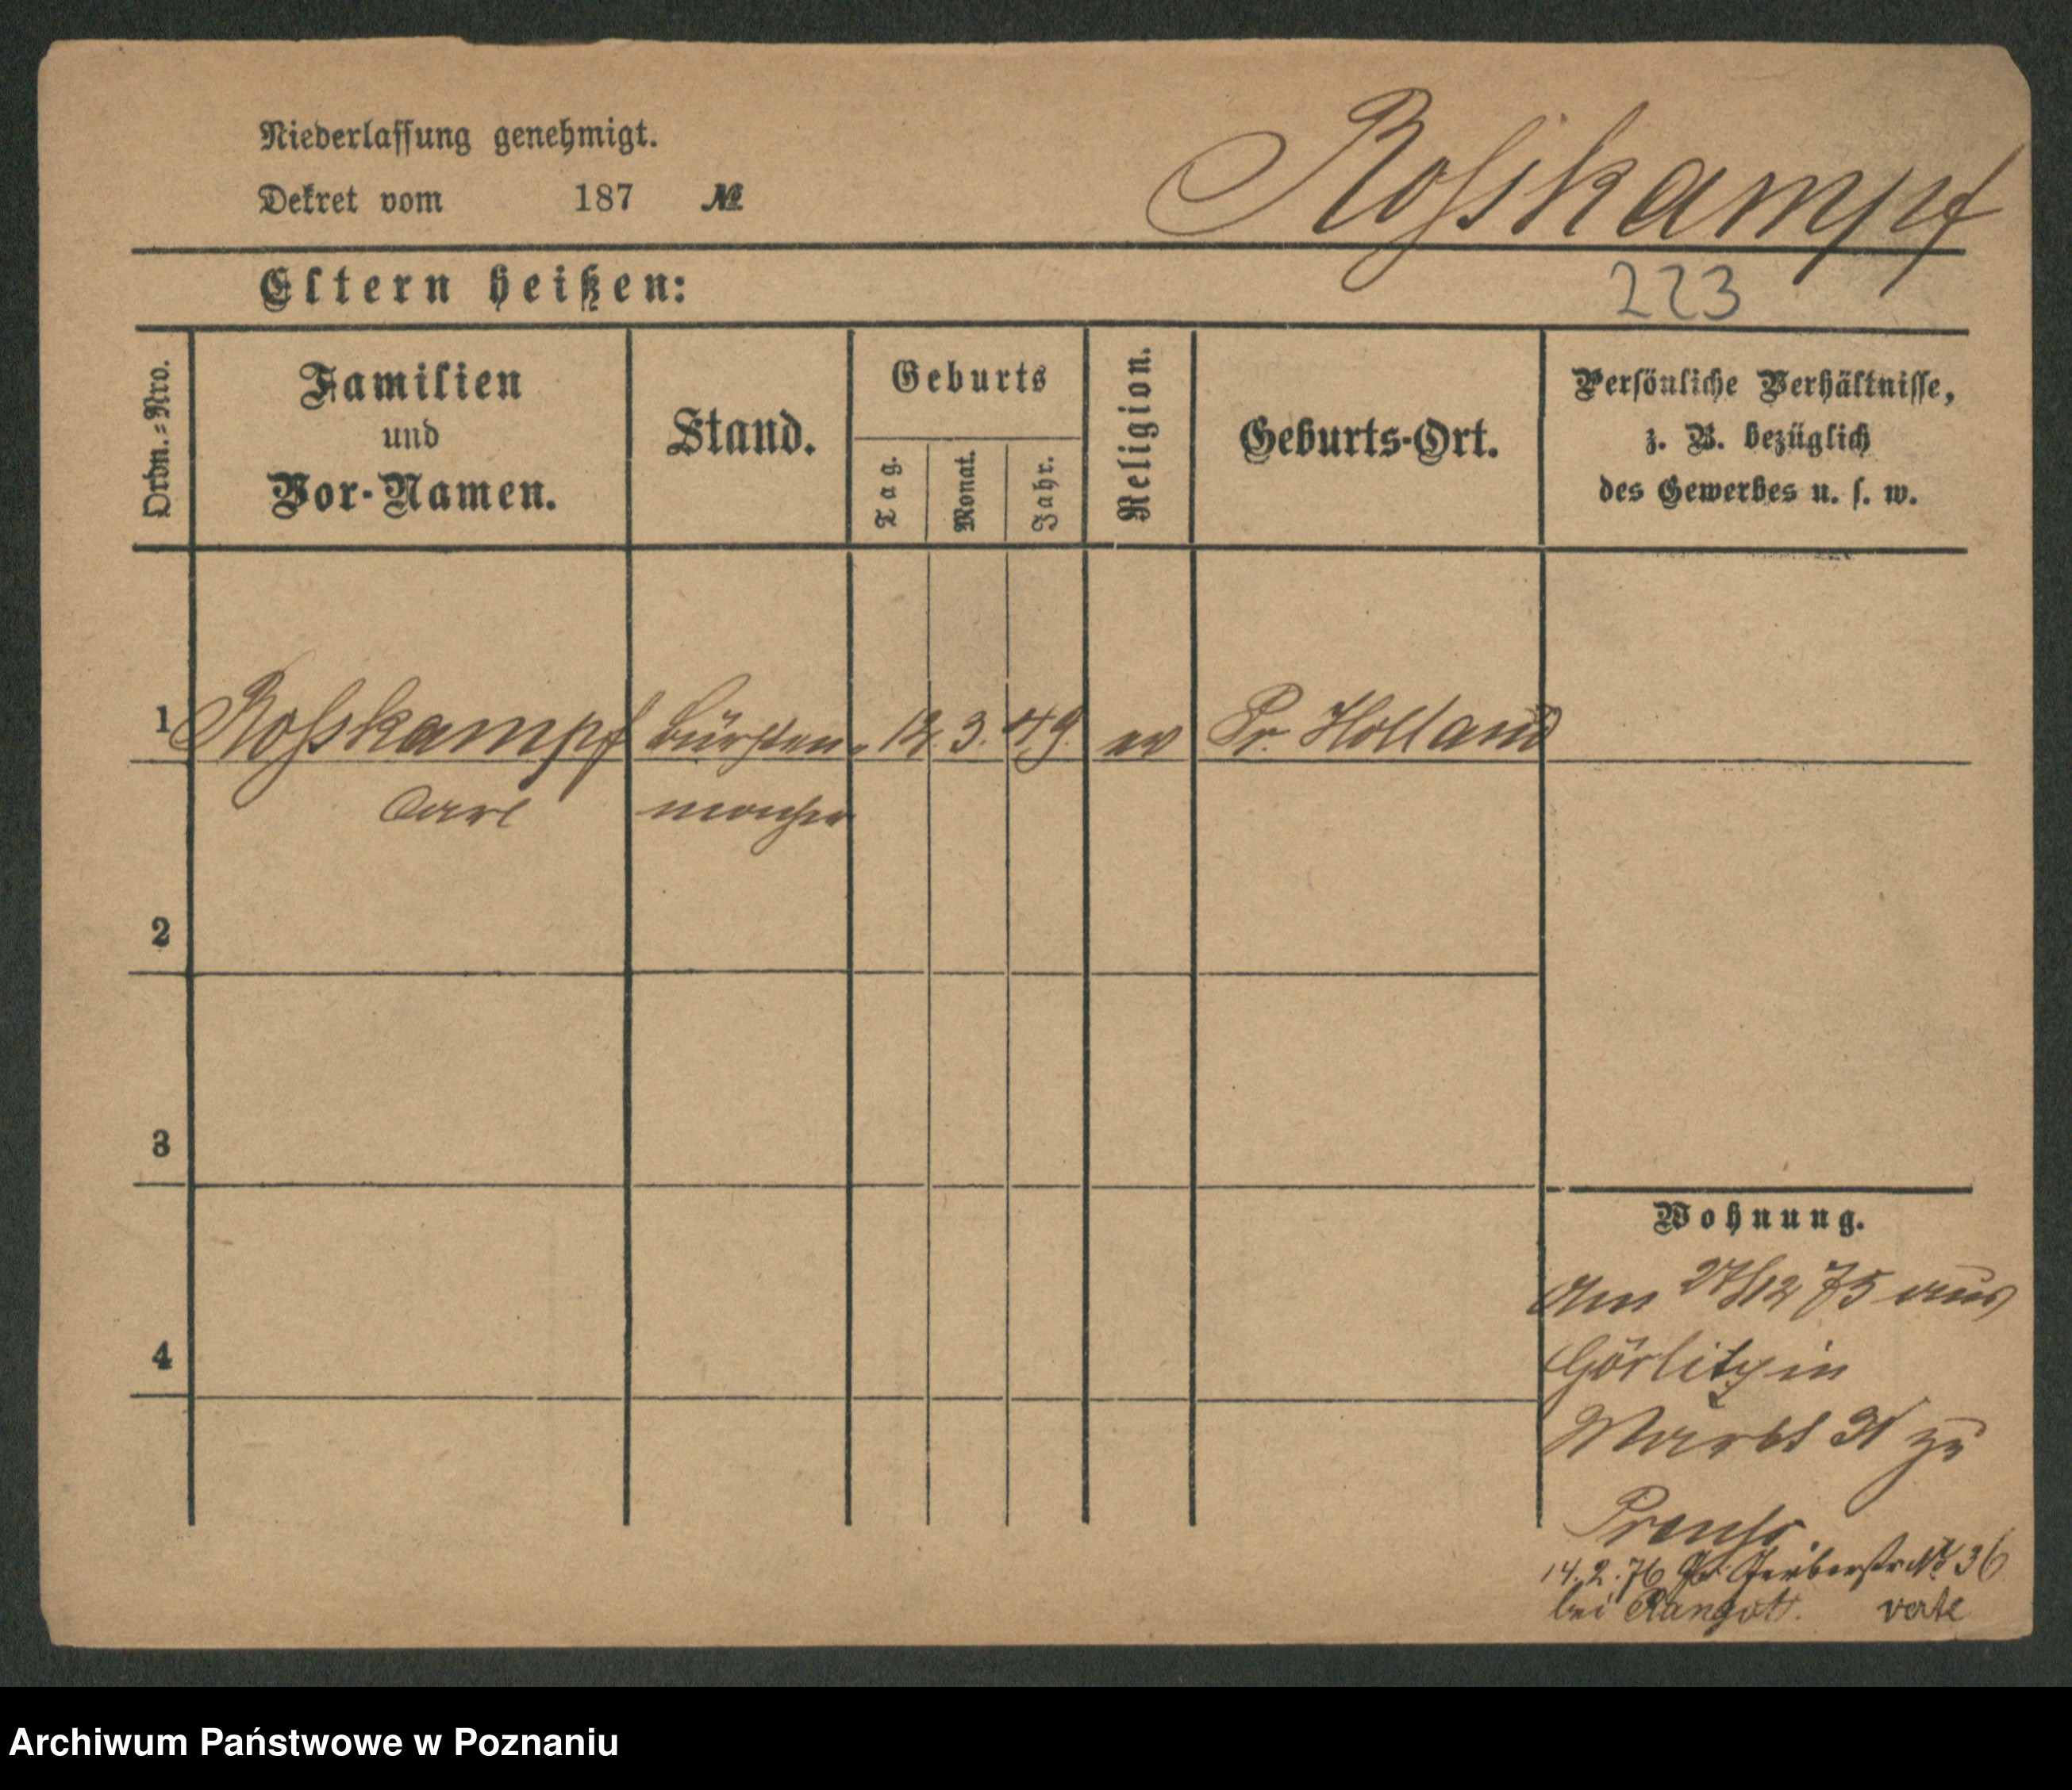 Niederlassung genehmigt.
Dekret vom 187 №
Rosskampf
Eltern heißen:
223
Ordn.=Nro.
Familien
und
Vor-Namen.
Stand.
Geburts
Tag.
Monat.
Jahr.
Religion.
Geburts-Ort.
Persönliche Verhältnisse,
z. B. bezüglich
des Gewerbes u. s. w.
1 Rosskampf Bürsten- 12. 3. 49. ev Pr. Holland
Carl macher
2
3
4
Wohnung.
Am 27/12 75 aus
Görlitz in
Markt 31 zu
14.2.76 Gr. Gerberstr № 36
bei verte
Archiwum Państwowe w Poznaniu